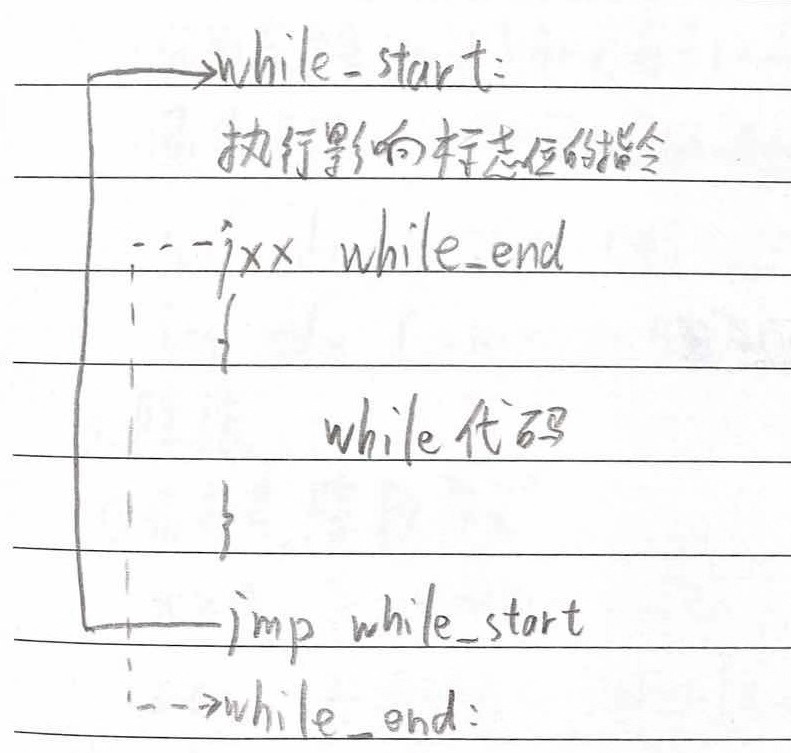 while_start:
执行影响标志位的指令
jxx while_end
{
while代码
}
jmp while_start
while_end: